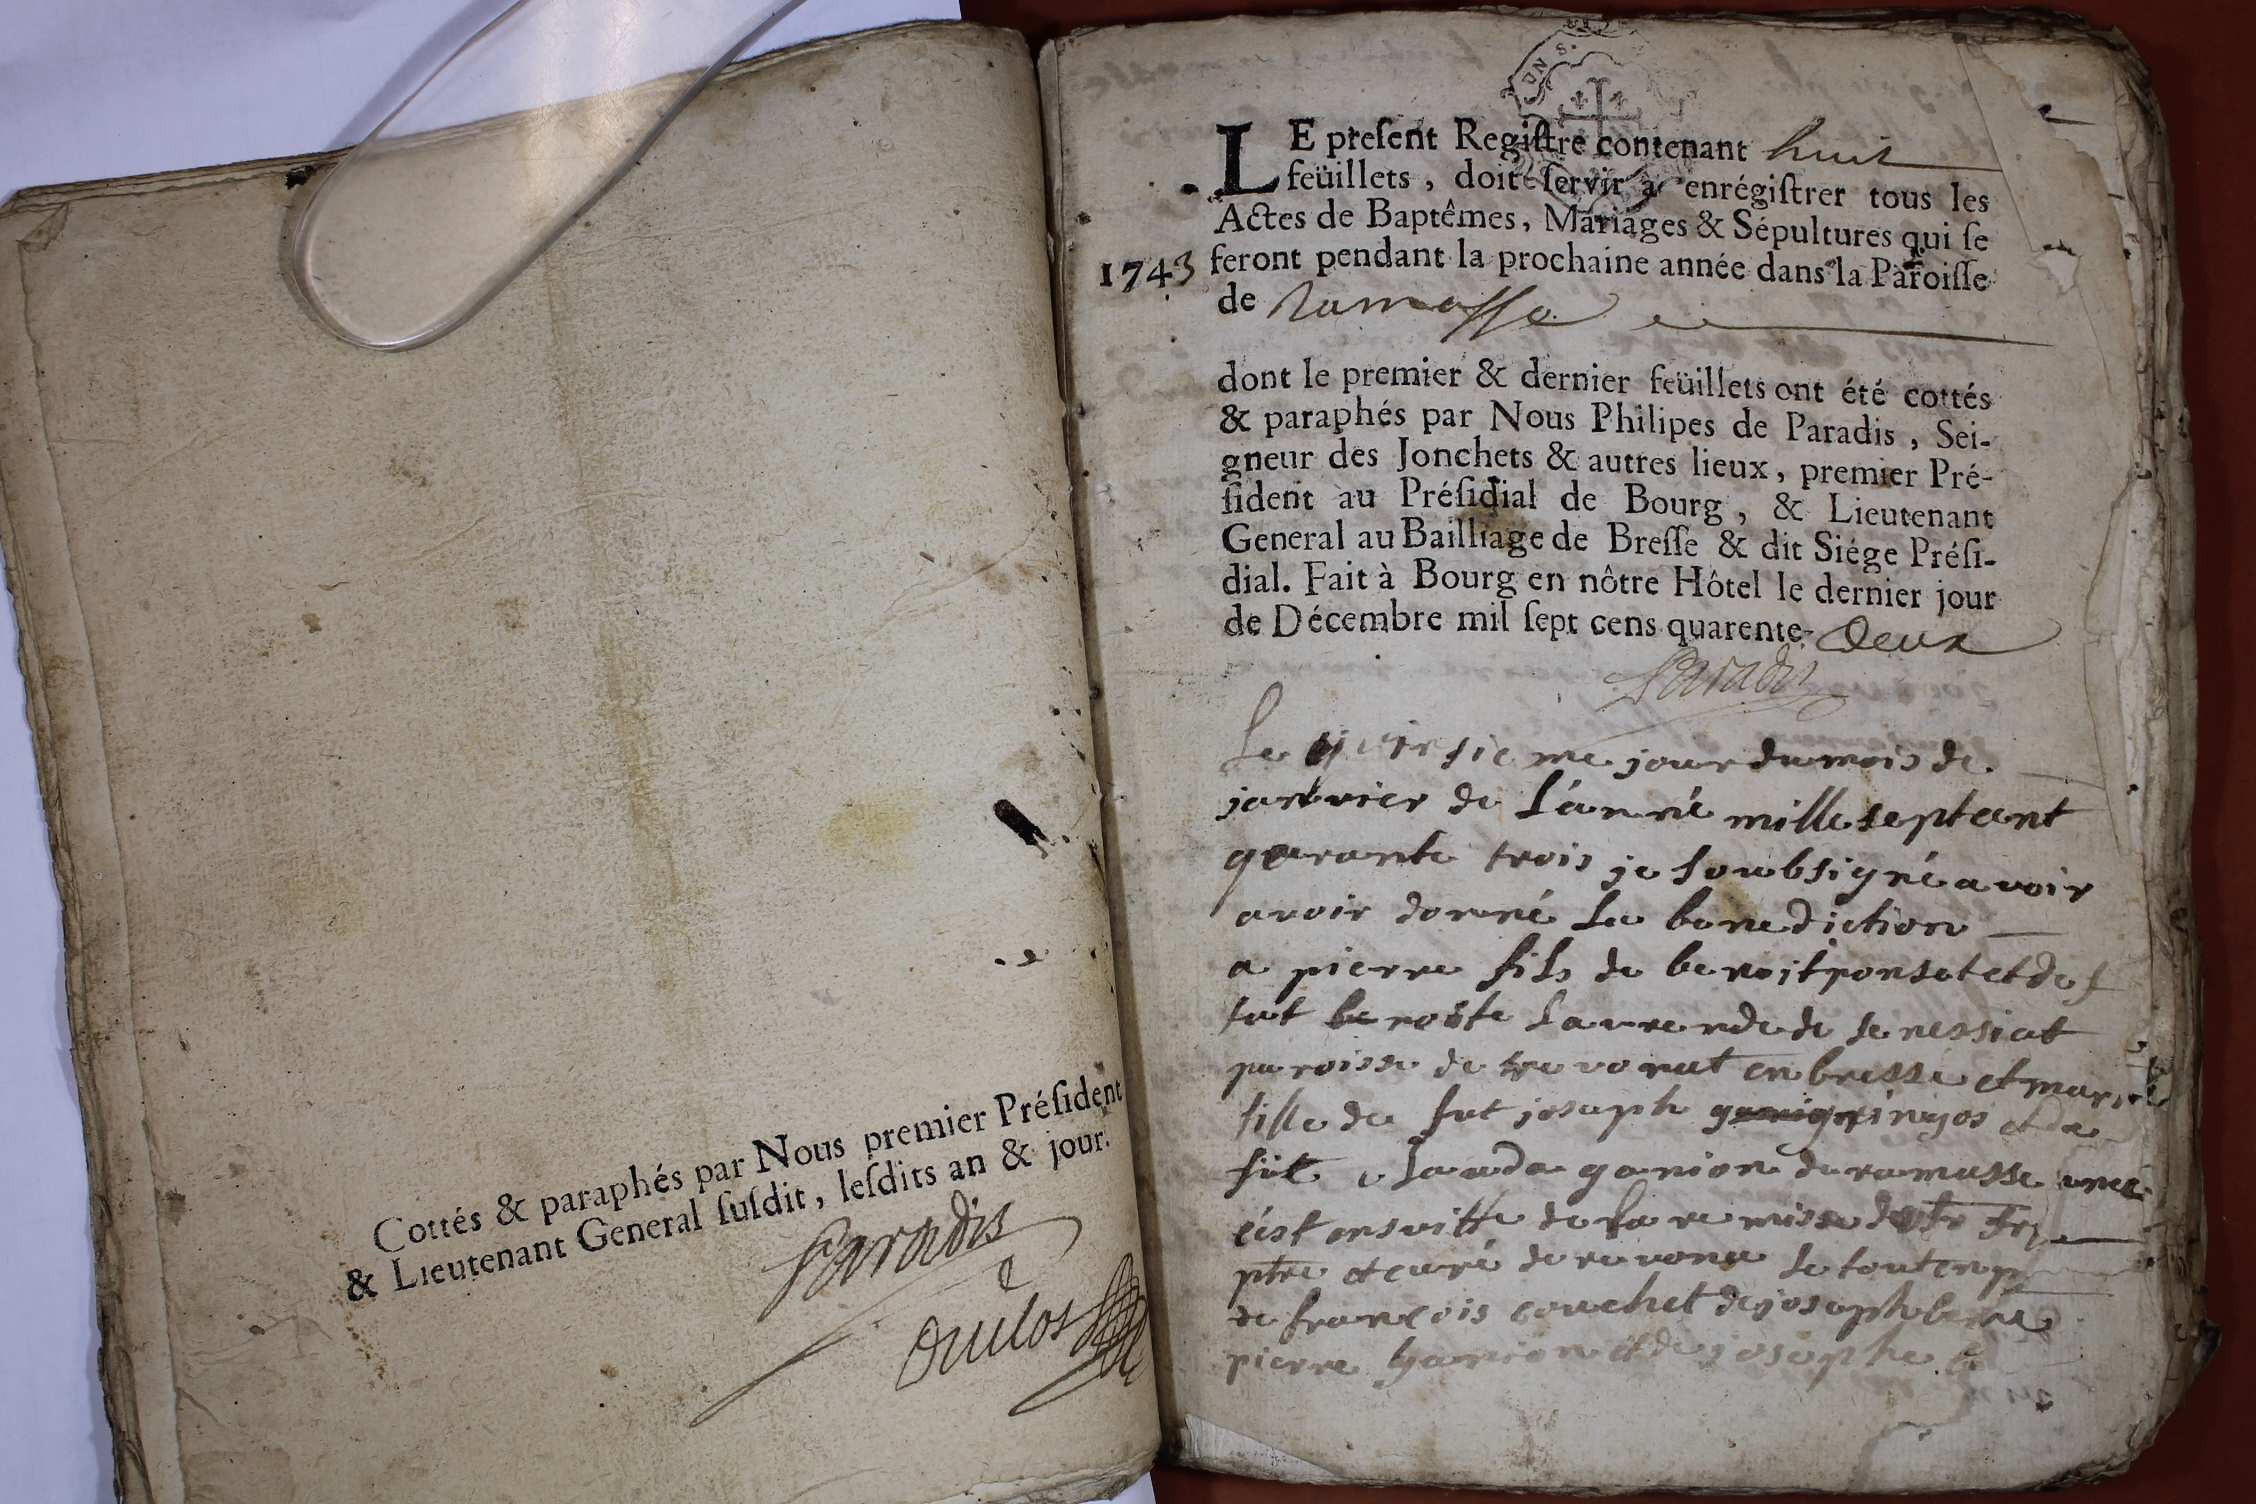 Cottés & paraphés par Nous premier Préſident
& Lieutenant General ſuſdit, leſdits an & jour.
Paradis
UN S.
LE preſent Regiſtre contenant huit
feüillets, doit ſervir à enrégiſtrer tous les
Actes de Baptêmes, Mariages & Sépultures qui ſe
1743 feront pendant la prochaine année dans la Paroiſſe
de Ramasse
dont le premier & dernier feüillets ont été cottés
& paraphés par Nous Philipes de Paradis, Sei-
gneur des Jonchets & autres lieux, premier Pré-
ſident au Préſidial de Bourg, & Lieutenant
General au Bailliage de Breſſe & dit Siége Préſi-
dial. Fait à Bourg en nôtre Hôtel le dernier jour
de Décembre mil ſept cens quarente-deux
Paradis
Le jour du mois de
janvier de l'année mille septcent
quarante trois je soubsigné avoir
avoir donné la benediction
a pierre fils de benoit ponset et de f
fut benoite de senessiat
paroisse de trevonat en bresse et mari
fille de fut joseph et de
fut ganion de ramasse
c'est ensuitte de la remisse de
ptre et curé de revona le tout en p
de françois couchet de joseph
pierre ganion et de josephe